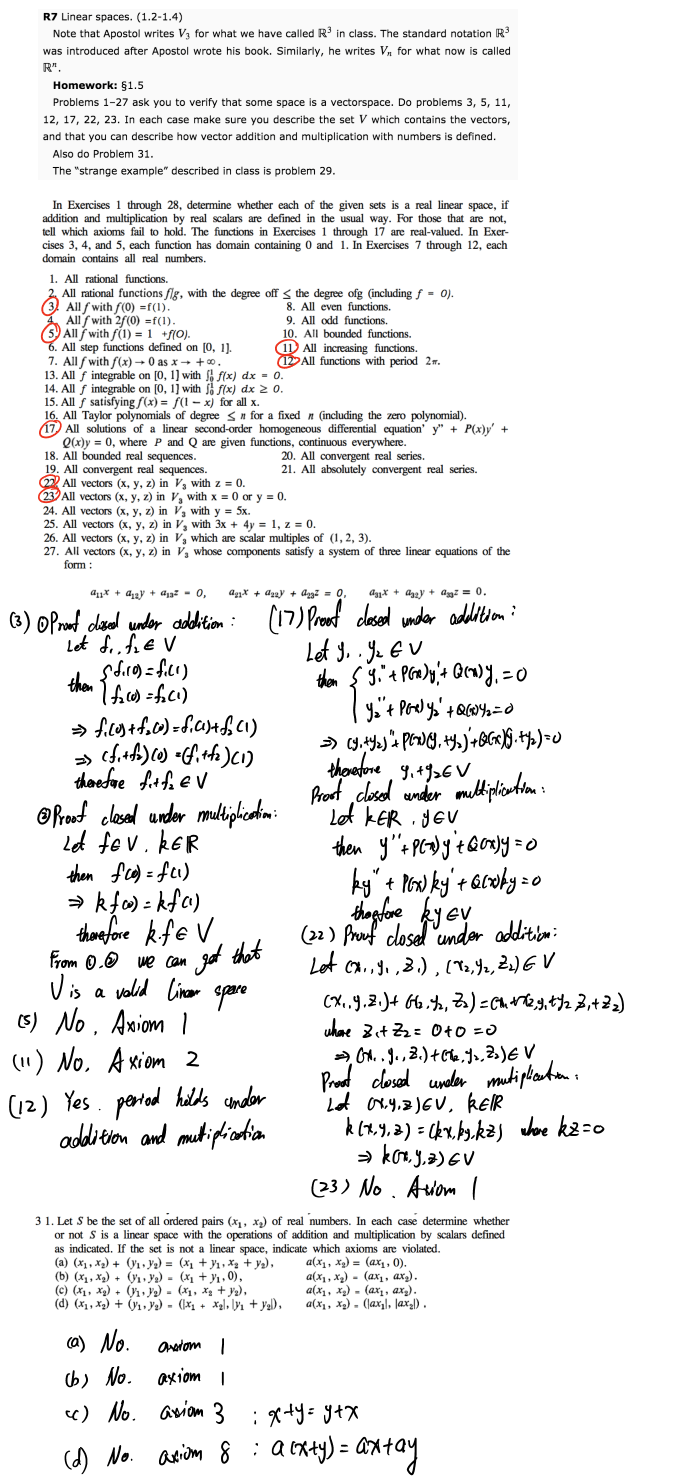 R7 Linear spaces. (1.2-1.4)
Note that Apostol writes V₃ for what we have called ℝ³ in class. The standard notation ℝ³
was introduced after Apostol wrote his book. Similarly, he writes Vₙ for what now is called
ℝⁿ.
Homework: §1.5
Problems 1–27 ask you to verify that some space is a vectorspace. Do problems 3, 5, 11,
12, 17, 22, 23. In each case make sure you describe the set V which contains the vectors,
and that you can describe how vector addition and multiplication with numbers is defined.
Also do Problem 31.
The "strange example" described in class is problem 29.
In Exercises 1 through 28, determine whether each of the given sets is a real linear space, if
addition and multiplication by real scalars are defined in the usual way. For those that are not,
tell which axioms fail to hold. The functions in Exercises 1 through 17 are real-valued. In Exer-
cises 3, 4, and 5, each function has domain containing 0 and 1. In Exercises 7 through 12, each
domain contains all real numbers.
1. All rational functions.
2. All rational functions f/g, with the degree off ≤ the degree ofg (including f = 0).
3. All f with f(0) =f(1).
8. All even functions.
4. All f with 2f(0) =f(1).
9. All odd functions.
5. All f with f(1) = 1 +f(0).
10. All bounded functions.
6. All step functions defined on [0, 1].
11. All increasing functions.
7. All f with f(x) → 0 as x → +∞.
12. All functions with period 2π.
13. All f integrable on [0, 1] with ∫₀¹ f(x) dx = 0.
14. All f integrable on [0, 1] with ∫₀¹ f(x) dx ≥ 0.
15. All f satisfying f(x) = f(1 − x) for all x.
16. All Taylor polynomials of degree ≤ n for a fixed n (including the zero polynomial).
17. All solutions of a linear second-order homogeneous differential equation' y" + P(x)y' +
Q(x)y = 0, where P and Q are given functions, continuous everywhere.
18. All bounded real sequences.
20. All convergent real series.
19. All convergent real sequences.
21. All absolutely convergent real series.
22. All vectors (x, y, z) in V₃ with z = 0.
23. All vectors (x, y, z) in V₃ with x = 0 or y = 0.
24. All vectors (x, y, z) in V₃ with y = 5x.
25. All vectors (x, y, z) in V₃ with 3x + 4y = 1, z = 0.
26. All vectors (x, y, z) in V₃ which are scalar multiples of (1, 2, 3).
27. All vectors (x, y, z) in V₃ whose components satisfy a system of three linear equations of the
form :
a₁₁x + a₁₂y + a₁₃z = 0, a₂₁x + a₂₂y + a₂₃z = 0, a₃₁x + a₃₂y + a₃₃z = 0.
(3) ① Proof closed under addition :
Let f₁, f₂ ∈ V
then { f₁(0) = f₁(1)
f₂(0) = f₂(1)
⇒ f₁(0) + f₂(0) = f₁(1) + f₂(1)
⇒ (f₁+f₂)(0) = (f₁+f₂)(1)
therefore f₁+f₂ ∈ V
② Proof closed under multiplication:
Let f∈V, k∈ℝ
then f(0) = f(1)
⇒ kf(0) = kf(1)
therefore k·f ∈ V
From ①,② we can get that
V is a valid linear space
(5) No, Axiom 1
(11) No, Axiom 2
(12) Yes. period holds under
addition and mutiplication
(17) Proof closed under addition :
Let y₁, y₂ ∈ V
then { y₁" + P(x)y₁' + Q(x)y₁ = 0
y₂" + P(x)y₂' + Q(x)y₂ = 0
⇒ (y₁+y₂)" + P(x)(y₁+y₂)' + Q(x)(y₁+y₂) = 0
therefore y₁+y₂∈V
Proof closed under multiplication :
Let k∈ℝ, y∈V
then y" + P(x)y' + Q(x)y = 0
ky" + P(x)ky' + Q(x)ky = 0
therefore ky∈V
(22) Proof closed under addition:
Let (x₁, y₁, z₁), (x₂, y₂, z₂) ∈ V
(x₁, y₁, z₁) + (x₂, y₂, z₂) = (x₁+x₂, y₁+y₂, z₁+z₂)
where z₁+z₂ = 0+0 =0
⇒ (x₁, y₁, z₁)+(x₂, y₂, z₂)∈ V
Proof closed under mutiplication :
Let (x,y,z)∈V, k∈ℝ
k(x,y,z) = (kx,ky,kz) where kz=0
⇒ k(x,y,z)∈V
(23) No. Axiom 1
3 1. Let S be the set of all ordered pairs (x₁, x₂) of real numbers. In each case determine whether
or not S is a linear space with the operations of addition and multiplication by scalars defined
as indicated. If the set is not a linear space, indicate which axioms are violated.
(a) (x₁, x₂) + (y₁, y₂) = (x₁ + y₁, x₂ + y₂), a(x₁, x₂) = (ax₁, 0).
(b) (x₁, x₂) + (y₁, y₂) = (x₁ + y₁, 0), a(x₁, x₂) = (ax₁, ax₂).
(c) (x₁, x₂) + (y₁, y₂) = (x₁, x₂ + y₂), a(x₁, x₂) = (ax₁, ax₂).
(d) (x₁, x₂) + (y₁, y₂) = (|x₁ + x₂|, |y₁ + y₂|), a(x₁, x₂) = (|ax₁|, |ax₂|) .
(a) No. axiom 1
(b) No. axiom 1
(c) No. axiom 3 : x+y = y+x
(d) No. axiom 8 : a(x+y) = ax+ay